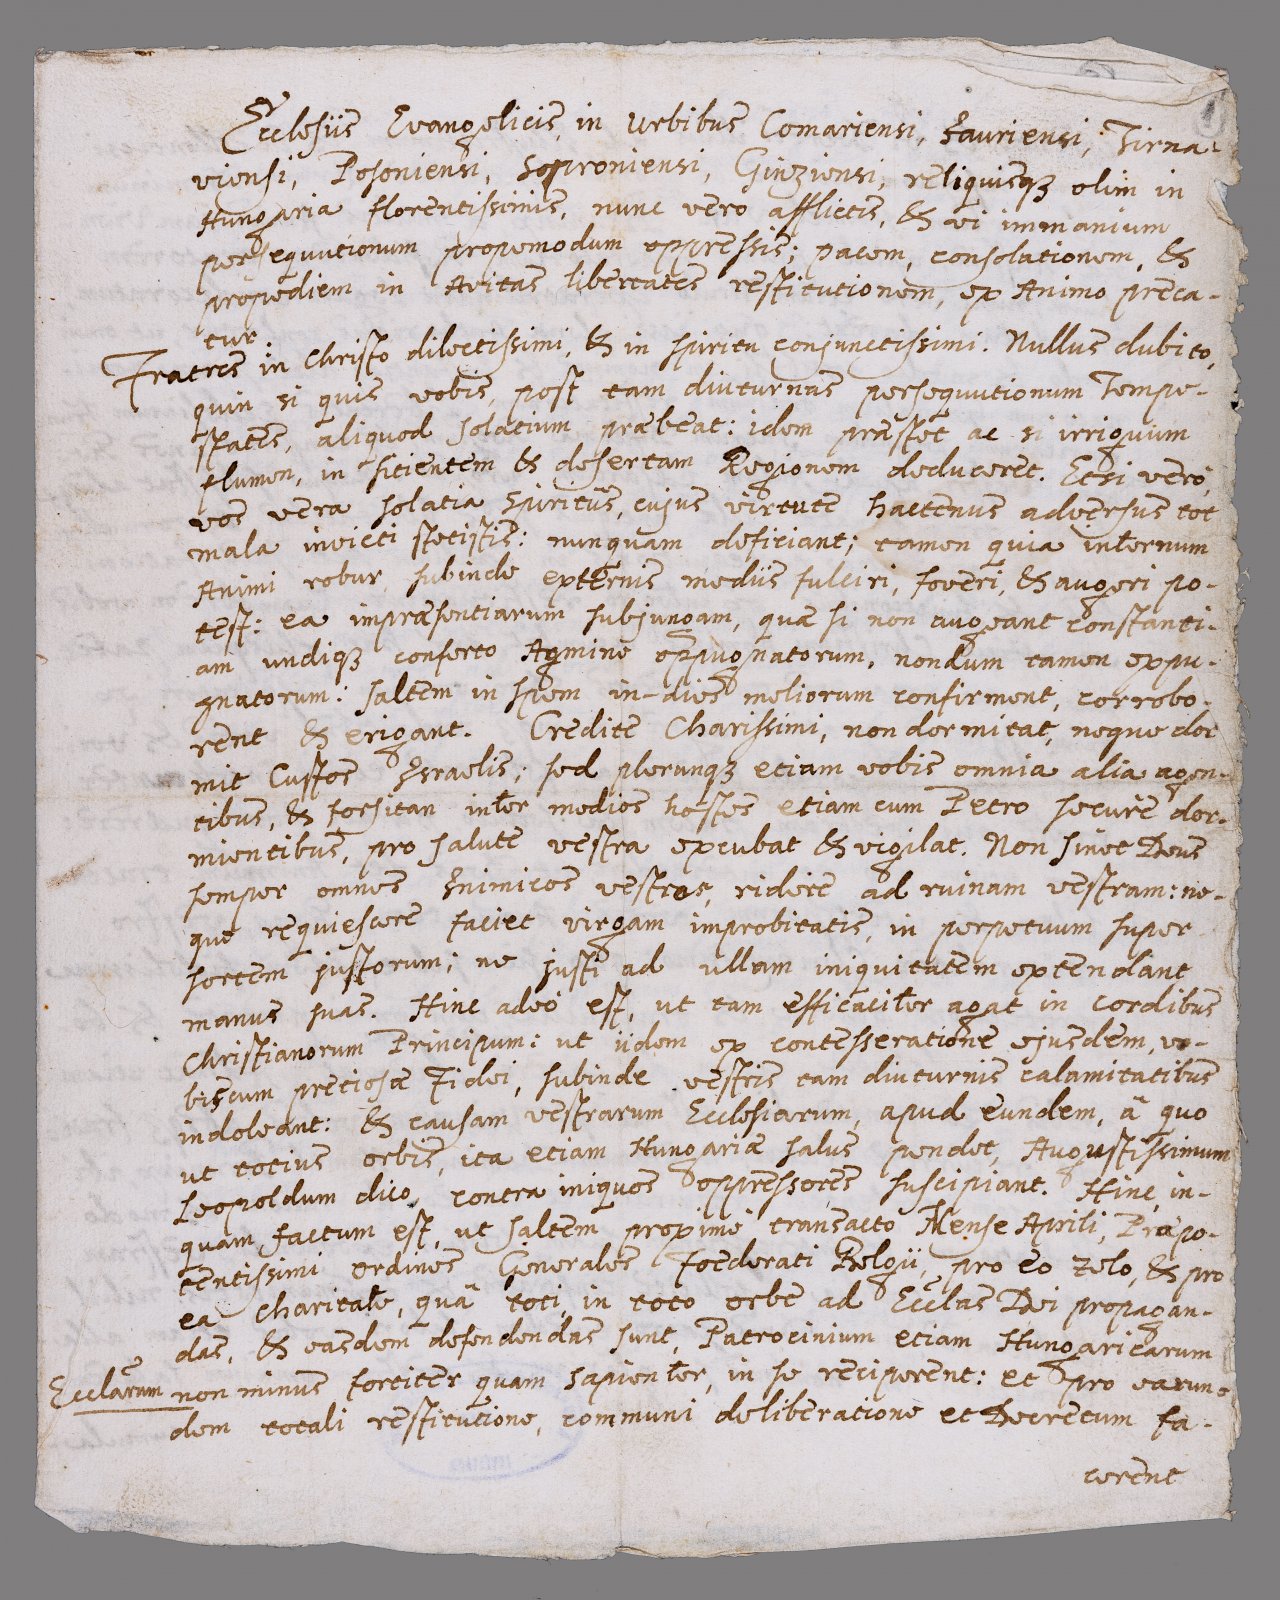 Ecclesiis Evangelicis, in Urbibus Comariensi, Jauriensi, Tirna-
viensi, Posoniensi, Soproniensi, Ginziensi, reliquisqȝ olim in
Hungaria florentissimis, nunc vero afflictis, & vi immanium
persequutionum propemodum oppressis; pacem, consolationem, &
propediem in Avitas libertates restitutionem, ex Animo preca-
tur.
Fratres in Christo dilectissimi, & in spiritu conjunctissimi. Nullus dubito,
quin si quis vobis, post tam diuturnas persequutionum Tempe-
states, aliquod solatium præbeat: idem præstet ac si irriguum
flumen, in sitientem & desertam Regionem deduceret. Etsi verò,
vos vera solatia Spiritûs, cujus virtute hactenus adversus tot
mala invicti stetistis: nunquam deficiant; tamen quia internum
Animi robur subinde externis mediis fulciri, foveri, & augeri po-
test: ea impræsentiarum subjungam, quæ si non augeant constanti-
am undiqȝ conferto Agmine oppugnatorum, nondum tamen expu-
gnatorum: saltem in spem in-dies meliorum confirment, corrobo-
rent & erigant. Credite Charissimi, non dormitat, neque dor
mit Custos Israelis; sed plerunqȝ etiam vobis omnia alia agen-
tibus, & forsitan inter medios hostes etiam cum Petro securè dor-
mientibus, pro salute vestra excubat & vigilat. Non sinet Deus
semper omnes Inimicos vestros, ridere ad ruinam vestram: ne-
que requiescere faciet virgam improbitatis, in perpetuum super
sortem justorum; ne justi ad ullam iniquitatem extendant
manus suas. Hinc adeò est, ut tam efficaciter agat in cordibus
Christianorum Principum: ut iidem ex contesseratione ejusdem, vo-
biscum pretiosæ Fidei, subinde vestris tam diuturnis calamitatibus
indoleant: & causam vestrarum Ecclesiarum, apud eundem, â quo
ut totius orbis, ita etiam Hungariæ salus pendet, Augustissimum
Leopoldum dico, contra iniquos oppressores suscipiant. Hinc, in-
quam, factum est, ut saltem proximè transacto Mense Aprili, Præpo-
tentissimi ordines Generales Foederati Belgii, pro eo zelo, & pro
ea Charitate, quâ toti, in toto orbe ad Ecclas Dei propagan-
das, & easdem defendendas sunt, Patrocinium etiam Hungaricarum
Ecclarum non minus fortiter quam sapienter, in se reciperent: et pro earun-
dem totali restitutione, communi deliberatione et Decretum fa-
cerent